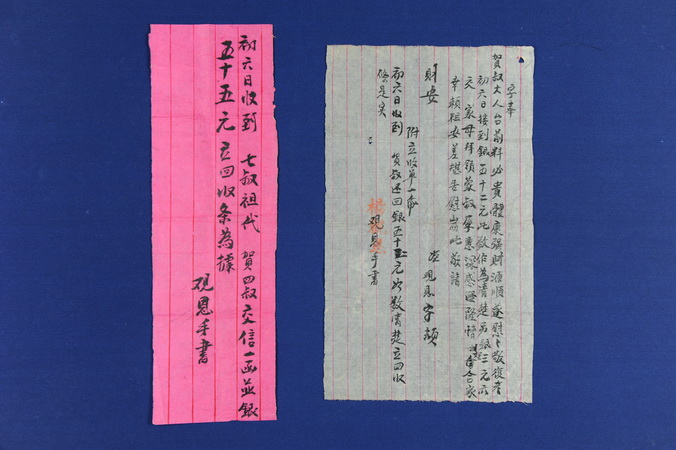 初六日收到 七叔祖代 賀四叔交信一函並銀
五十五元立回收条為據
硯恩手書
字奉
賀叔大人台前料必貴體康強財源順遂慰卜敬復者
初六日接到銀五十二元此款作為清楚另銀三元以
交家母拜領蒙叔厚惠深感 合家
幸賴祖安差堪告慰耑此敬請
財安
附立收单一
硯恩字頓
初六日收到 賀叔还回銀五十 元此数清楚立回收
條是实
硯恩手書